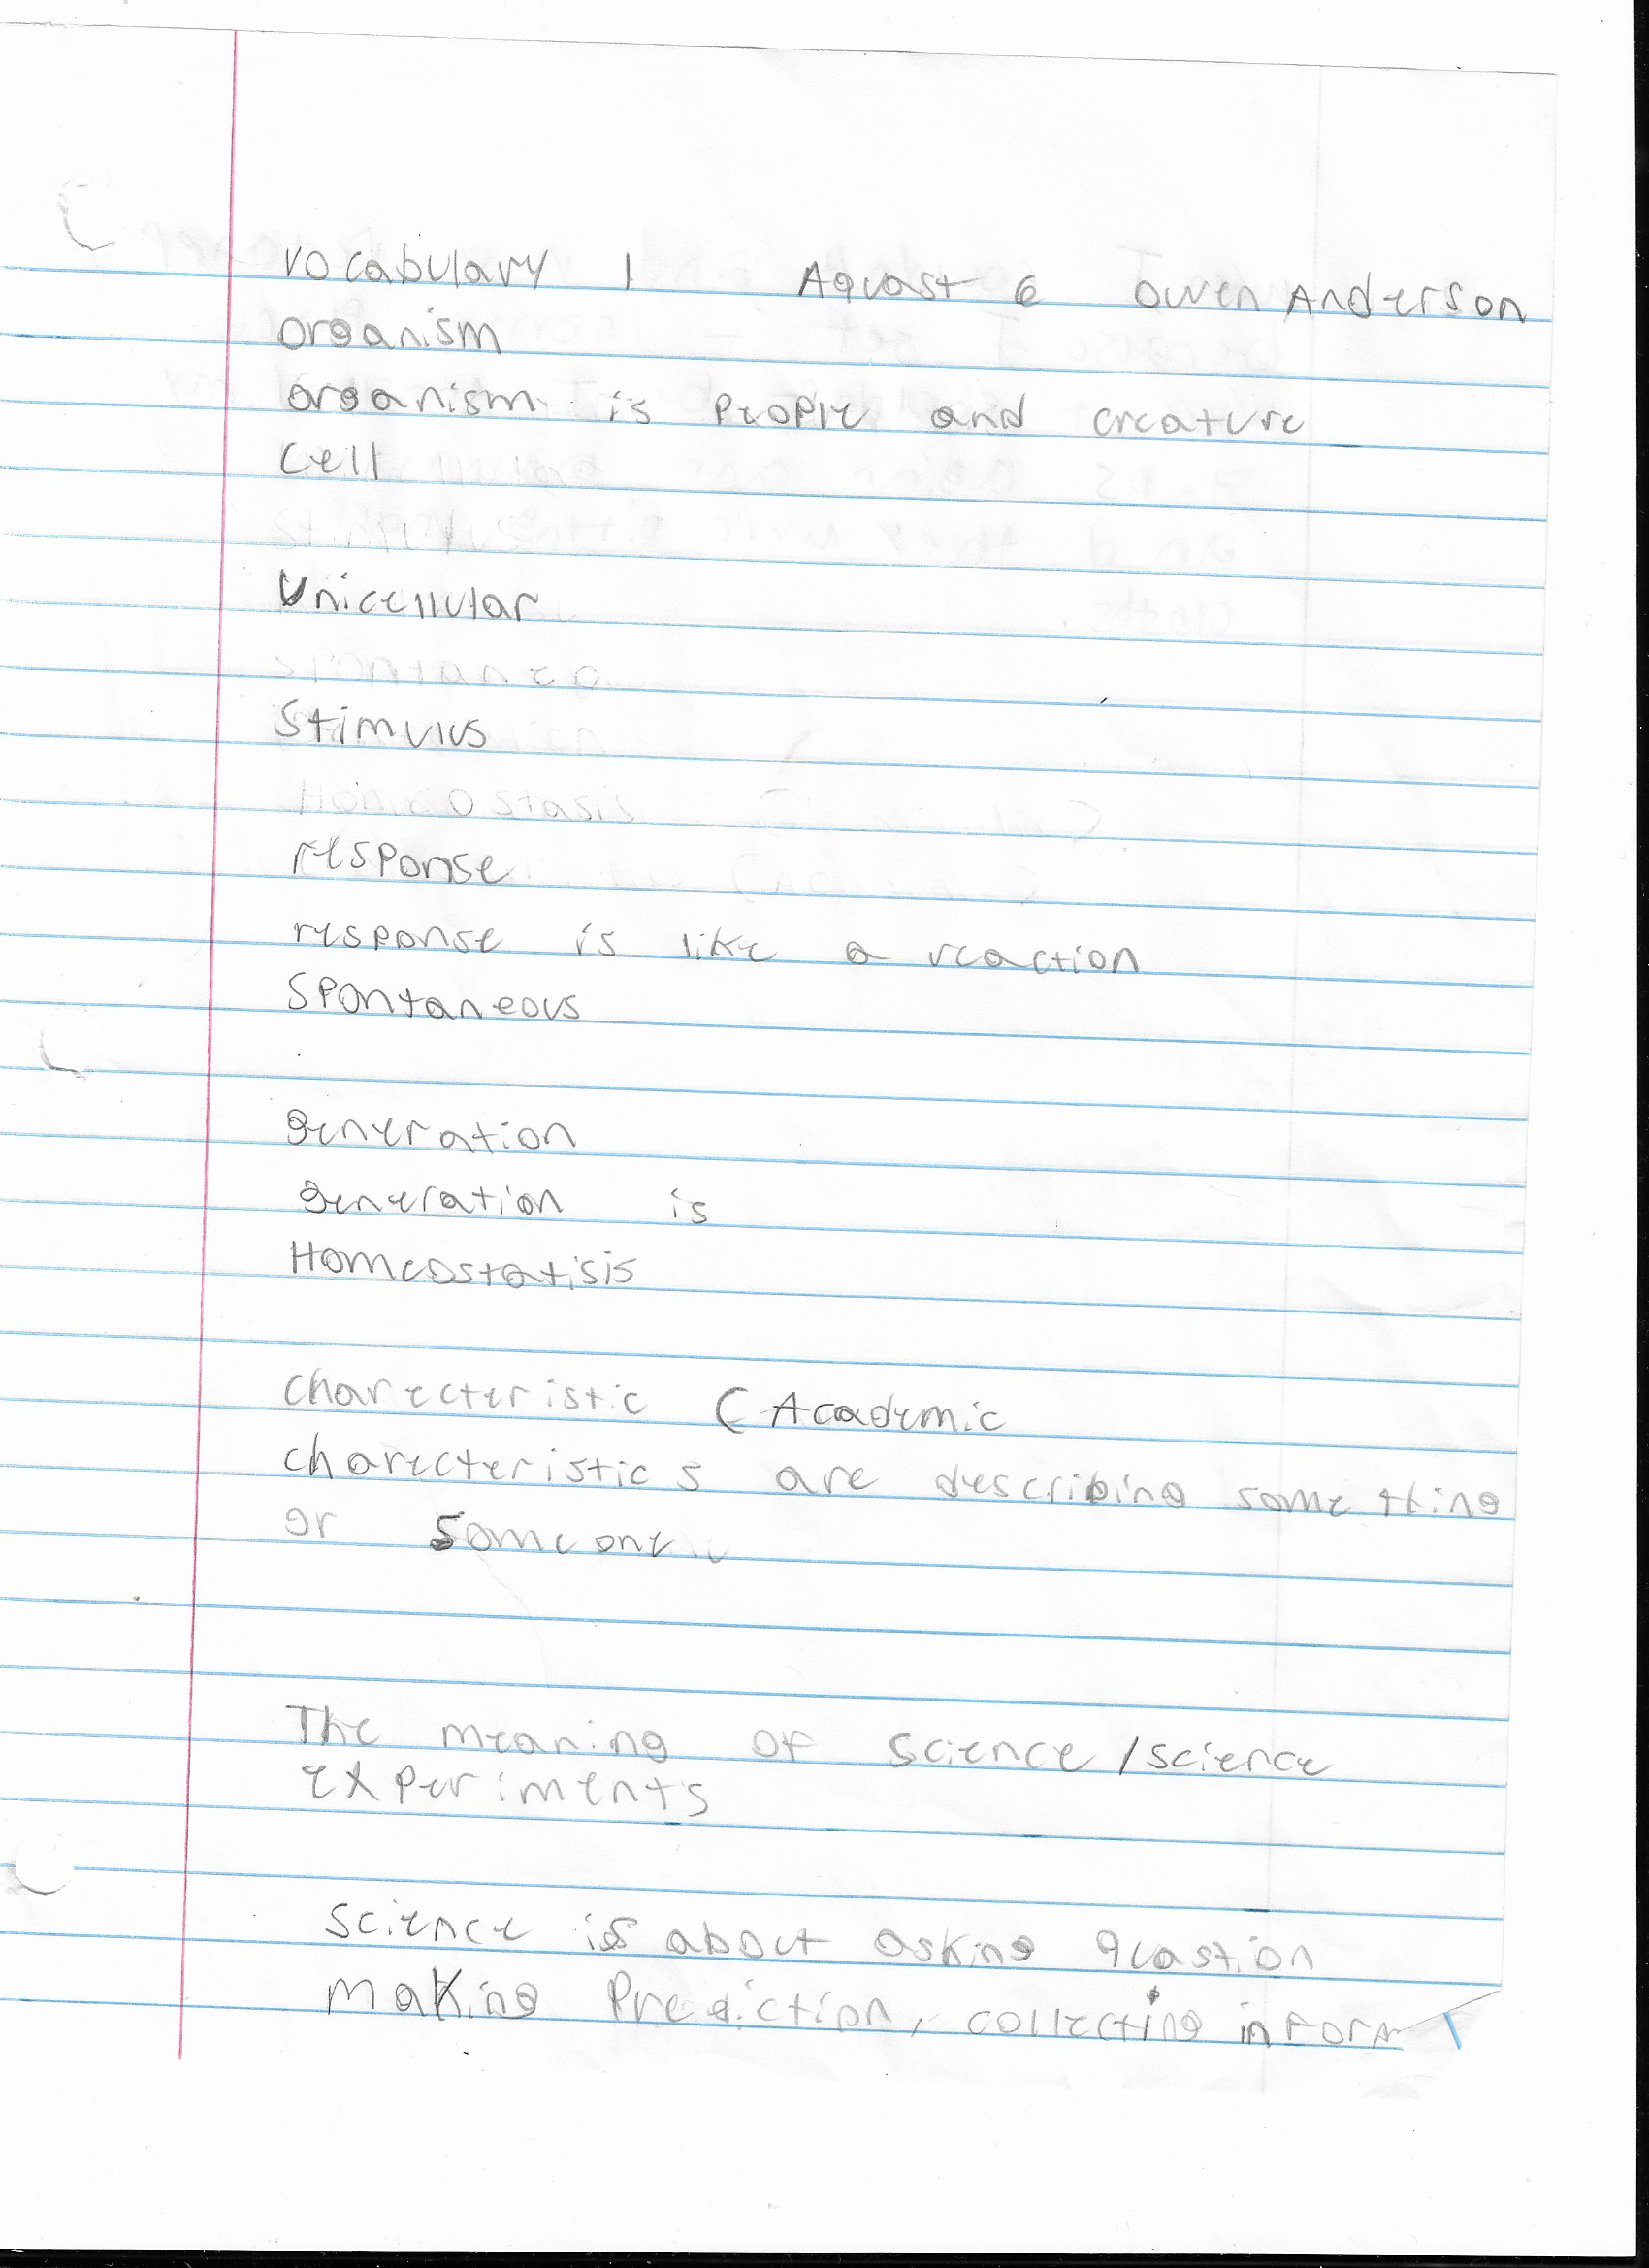 vocabulary 1 Aquast 6 Owen Anderson
organism
organism is people and creature
cell
Unicellular
Stimulus
Homeostasis
response
response is like a reaction
Spontaneous
generation
generation is
Homeostatisis
charecteristic (Academic
charecteristics are describing something
or someone
The meaning of science / science
experiments
science is about asking quastion
making Prediction, collecting inform